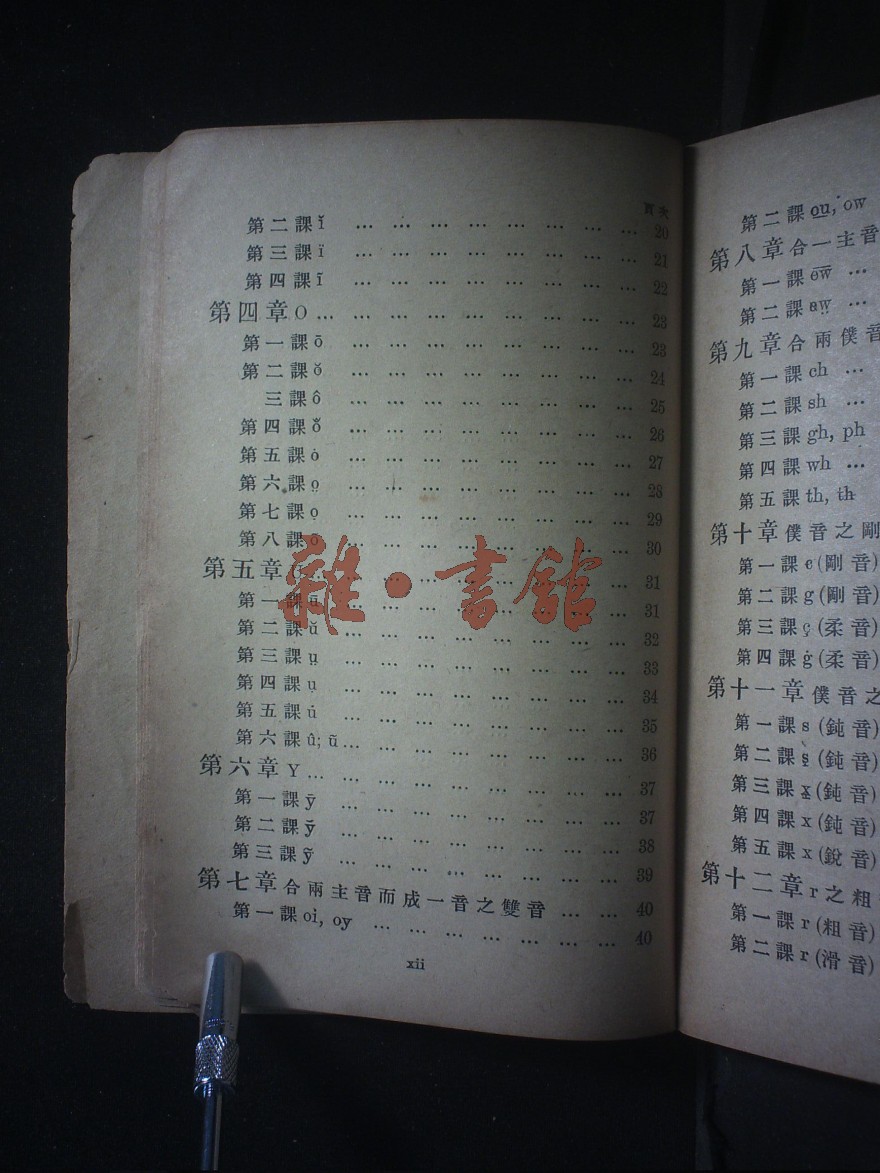 頁次
第二課 ǐ ... ... ... ... ... ... ... ... 20
第三課 ï ... ... ... ... ... ... ... ... 21
第四課 ī ... ... ... ... ... ... ... ... 22
第四章 O ... ... ... ... ... ... ... ... 23
第一課 ō ... ... ... ... ... ... ... ... 23
第二課 ŏ ... ... ... ... ... ... ... ... 24
三課 ô ... ... ... ... ... ... ... ... 25
第四課 ... ... ... ... ... ... ... ... 26
第五課 ȯ ... ... ... ... ... ... ... ... 27
第六課 o̤ ... ... ... ... ... ... ... ... 28
第七課 ọ ... ... ... ... ... ... ... ... 29
第八課 ... ... ... ... ... ... ... ... 30
第五章 ... ... ... ... ... ... ... ... 31
第一課 ū ... ... ... ... ... ... ... ... 31
第二課 ŭ ... ... ... ... ... ... ... ... 32
第三課 ṳ ... ... ... ... ... ... ... ... 33
第四課 ụ ... ... ... ... ... ... ... ... 34
第五課 u̇ ... ... ... ... ... ... ... ... 35
第六課 û; ũ ... ... ... ... ... ... ... ... 36
第六章 Y ... ... ... ... ... ... ... ... 37
第一課 ȳ ... ... ... ... ... ... ... ... 37
第二課 y̆ ... ... ... ... ... ... ... ... 38
第三課 ỹ ... ... ... ... ... ... ... ... 39
第七章 合兩主音而成一音之雙音 ... ... 40
第一課 oi, oy ... ... ... ... ... ... ... 40
xii
雜·書館
第二課 ou, ow
第八章 合一主音
第一課 ew ...
第二課 aw ...
第九章 合兩僕音
第一課 ch ...
第二課 sh ...
第三課 gh, ph
第四課 wh ...
第五課 th, th
第十章 僕音之剛
第一課 c (剛音)
第二課 g (剛音)
第三課 ç (柔音)
第四課 ġ (柔音)
第十一章 僕音之
第一課 s (鈍音)
第二課 s̱ (鈍音)
第三課 x̱ (鈍音)
第四課 x (鈍音)
第五課 x (銳音)
第十二章 r 之粗
第一課 r (粗音)
第二課 r (滑音)